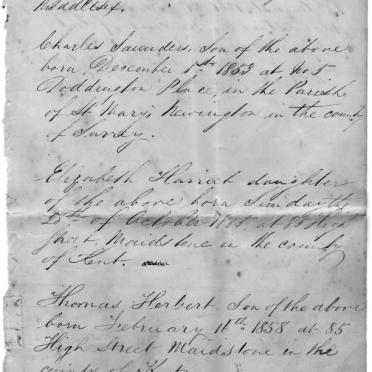 Middlesex.
Charles Saunders, Son of the above
born, December 1st 1853 at No 5
Doddington Place, in the Parish
of St Marys Newington in the county
of Surrey.
Elizabeth Harriet daughter
of the above born Sunday
of October at 85 High
Street, Maidstone in the county
of Kent.
Thomas, Herbert Son of the above
born February 11th 1858 at 85
High Street Maidstone in the
county of Kent